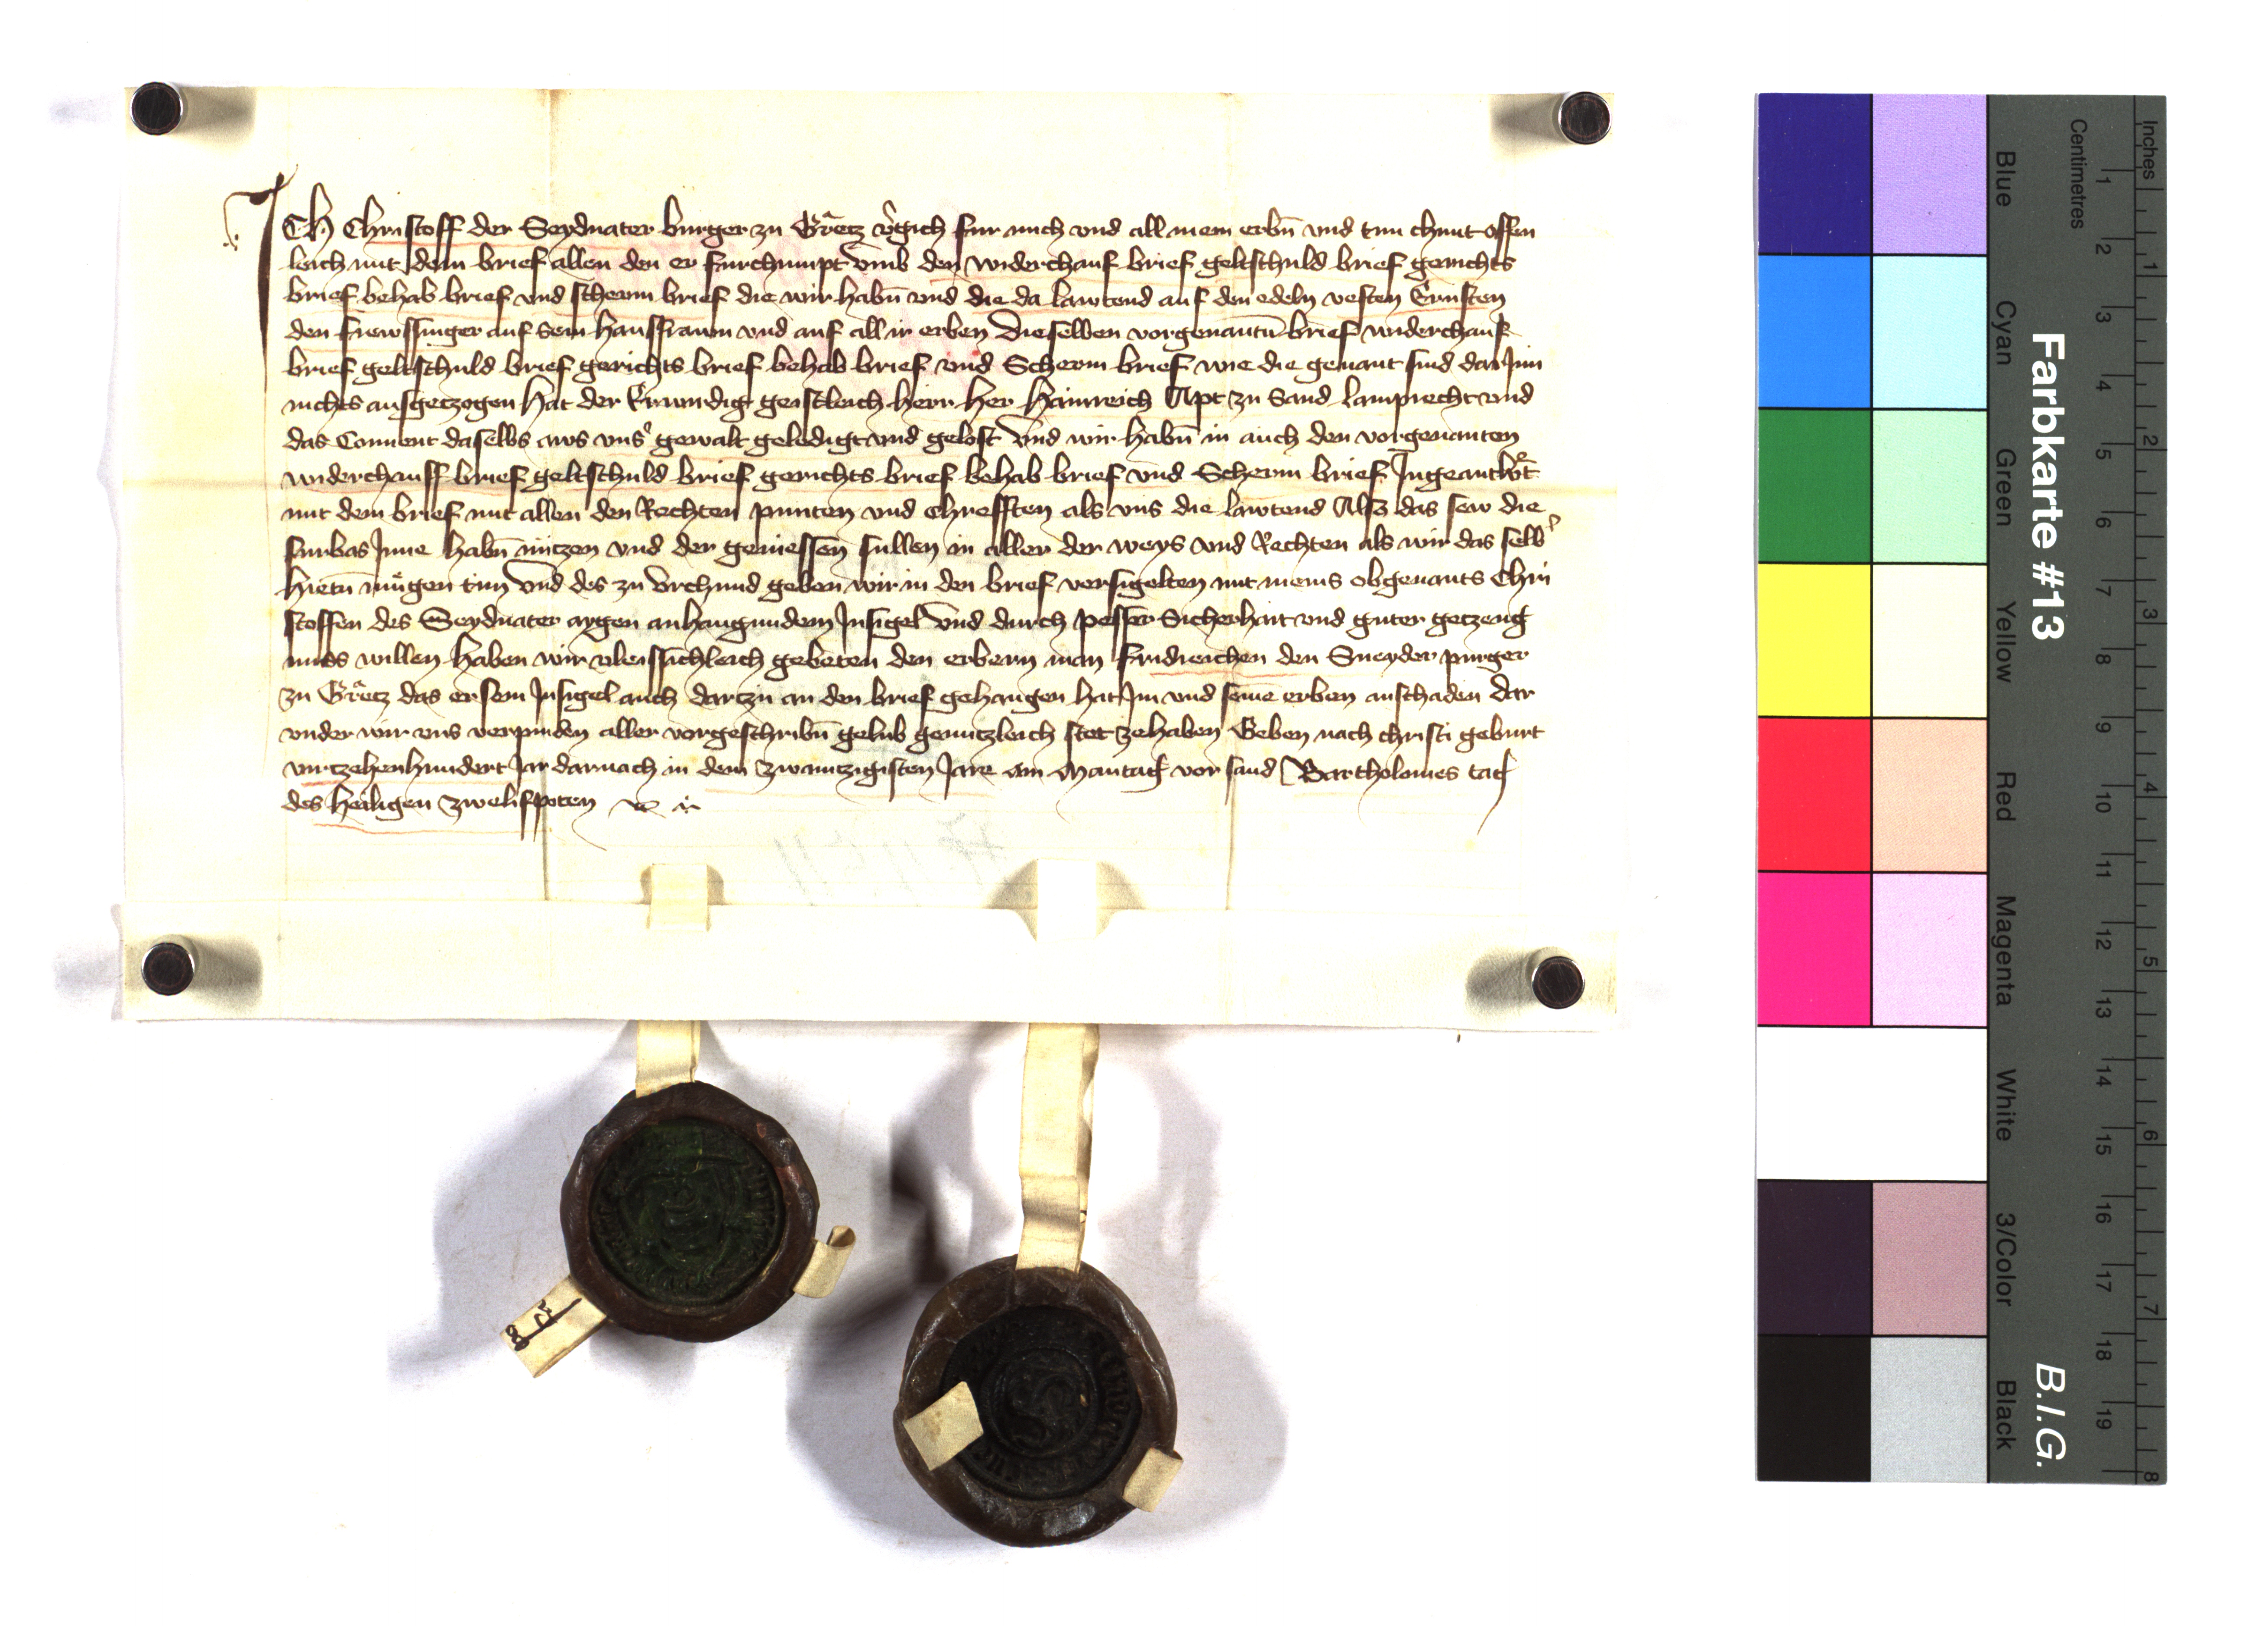 ICH Christoff der Seydnater burger zu Grͤetz v̾gich fur mich vnd all mein erbn̄ vnd tun chunt offen
leich mit dem brief allen den er furchumpt vmb den widerchauf brief geltschuld brief gerichts
brief behab brief vnd scherm brief die wir habn̄ vnd die da lawtend auf den edeln vesten Ernsten
den auf sein hausfrawn vnd auf all ir erben Dieselben vorgenantn̄ brief widerchauf
brief geltschuld brief gerichts brief behab brief vnd Scherm brief wie die genant sind dar Inn
nichts ausgetzogen hat der Erwirdig geistleich herr her Hainreich Apt zu Sand Lamprecht vnd
das Conuent daselbs aws vns̾ gewalt geledigt vnd gelost Vnd wir habn̄ in auch den vorgenanten
widerchauff brief geltschuld brief gerichts brief behab brief vnd Scherm brief Ingeantwͦt
mit dem brief mit allen den Rechten punten vnd chrefften als vns die lawtend Alsz das sew die
furbas Inne habn̄ nützen vnd der geniessen sullen in aller der weys vnd Rechten als wir das selb̾
hietn̄ mügen tun Vnd des zu vrchund geben wir in den brief versigelten mit meins obgenants Chri
stoffen des Seydnater aygen anhangundem Insigel Vnd durch pesser Sicherhait vnd guter getzeug
nuss willen haben wir vleissichleich gebeten den erbern man Fridreichen den Sneyder purger
zu Grͤetz das er sein Insigel auch dartzu an den brief gehangen hat Im vnd seinē erben anschaden dar
vnder wir vns verpinden aller vorgeschribn̄ gelub genntzleich stet zehaben Geben nach christi geburt
virtzehenhundert Jar darnach in dem zwaintzigisten Jare am Mantag vor sand Bartholomes tag
des heiligen zwelifpoten
Farbkarte #13
B.I.G.
Inches
Centimetres
1 2 3 4 5 6 7 8 9 10 11 12 13 14 15 16 17 18 19
1 2 3 4 5 6 7 8
Blue
Cyan
Green
Yellow
Red
Magenta
White
3/Color
Black